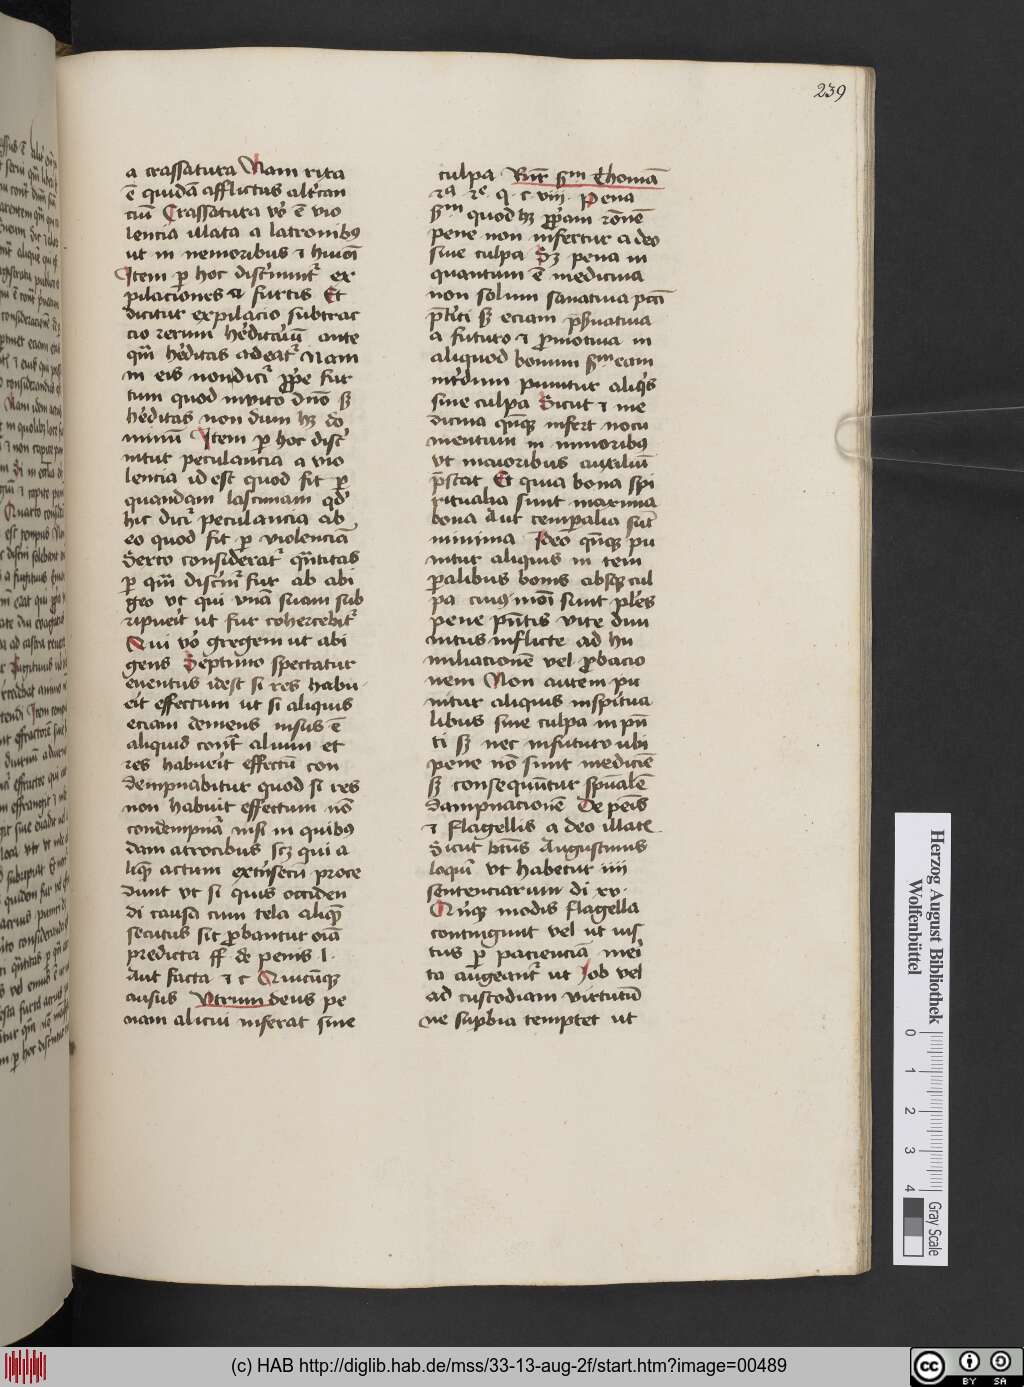 239
a crassatura Nam rixa
ē quidā afflictus altcan
ciū Crassatura vō ē vio
lencia illata a latronibꝰ
ut in nemoribus ⁊ huiōi
Item ꝑ hoc discīnūtʳ ex
pilaciones a furtis Et
dicitur expilacio subtrac
cio rerum hēditariū ante
qm̄ hēditas adeatʳ Nam
in eis nondicīʳ ꝓpe fur
tum quod invito dn̄o sꝫ
hēditas non dum hꝫ do
minū Item ꝑ hoc discī
nitur peculancia a vio
lencia id est quod fit ꝑ
quandam lasciuiam qd̄
hic dicīʳ peculancia ab
eo quod fit ꝑ violenciā
Serto consideratʳ qn̄titas
ꝑ qm̄ discīnīʳ fur ab abi
geo vt qui vnā suam sub
ripueīt ut fur cohercebitʳ
Qui vō gregem ut abi
gens Septimo spectatur
euentus idest si res habu
eīt effectum ut si aliquis
eciam demens nisus ē
aliquid contʳ alium et
res habueīt effectū con
dempnabitur quod si res
non habuit effectum nō
condempnāʳ nisi in quibꝰ
dam atrocibus scꝫ qui a
liqꝫ actum extīsecū proce
dunt vt si quis occiden
di causa cum tela aliqꝫ
secutus sit ꝓbantur oīa
predicta ff de penis l.
Aut facta ⁊ c Quicūqꝫ
ausus Vtrum deus pe
nam alicui inferat sine
culpa Rn̄r sm̄ Thomā
2ᵃ 2ᵉ q. c viij. Pena
sm̄ quod hꝫ ꝓpiam rōnē
pene non infertur a deo
sine culpa Sꝫ pena in
quantum ē medicina
non solum sanatiua pctī
pt̄iti sꝫ eciam p̄ẜuatiua
a futuro ⁊ ꝓmotiua in
aliquod bonum sm̄ eam
int̄dum punitur aliqīs
sine culpa Sicut ⁊ me
dicina qn̄qꝫ infert nocu
mentum in minoribꝰ
vt maioribus auxiliū
p̄stat Et quia bona spi
ritualia sunt maxima
bona Aut temꝑalia sūt
minima Ideo qn̄qꝫ pu
nitur aliquis in tem
ꝑalibus bonis absqꝫ cul
pa cuiꝰmōi sunt pl̄es
pene pn̄tis vite diui
nitus inflicte ad hu
miliacionē vel ꝓbacio
nem Non autem pu
nitur aliquis inspitua
libus sine culpa in pn̄
ti sꝫ nec infuturo ubi
pene nō sunt mediciē
sꝫ consequūtur spūalē
dampnacionē De peīs
⁊ flagellis a deo illatꝭ
Sicut btūs Augustinus
loquīʳ vt habetur iiii
sentenciarum di xv.
Qīqꝫ modis flagella
contingunt vel ut ius
tus ꝑ pacienciā mei
ta augeantʳ ut Job vel
ad custodiam virtutū
ne supbia temptet ut
Herzog August Bibliothek
Wolfenbüttel
0 1 2 3 4
Gray Scale
(c) HAB http://diglib.hab.de/mss/33-13-aug-2f/start.htm?image=00489
cc BY SA